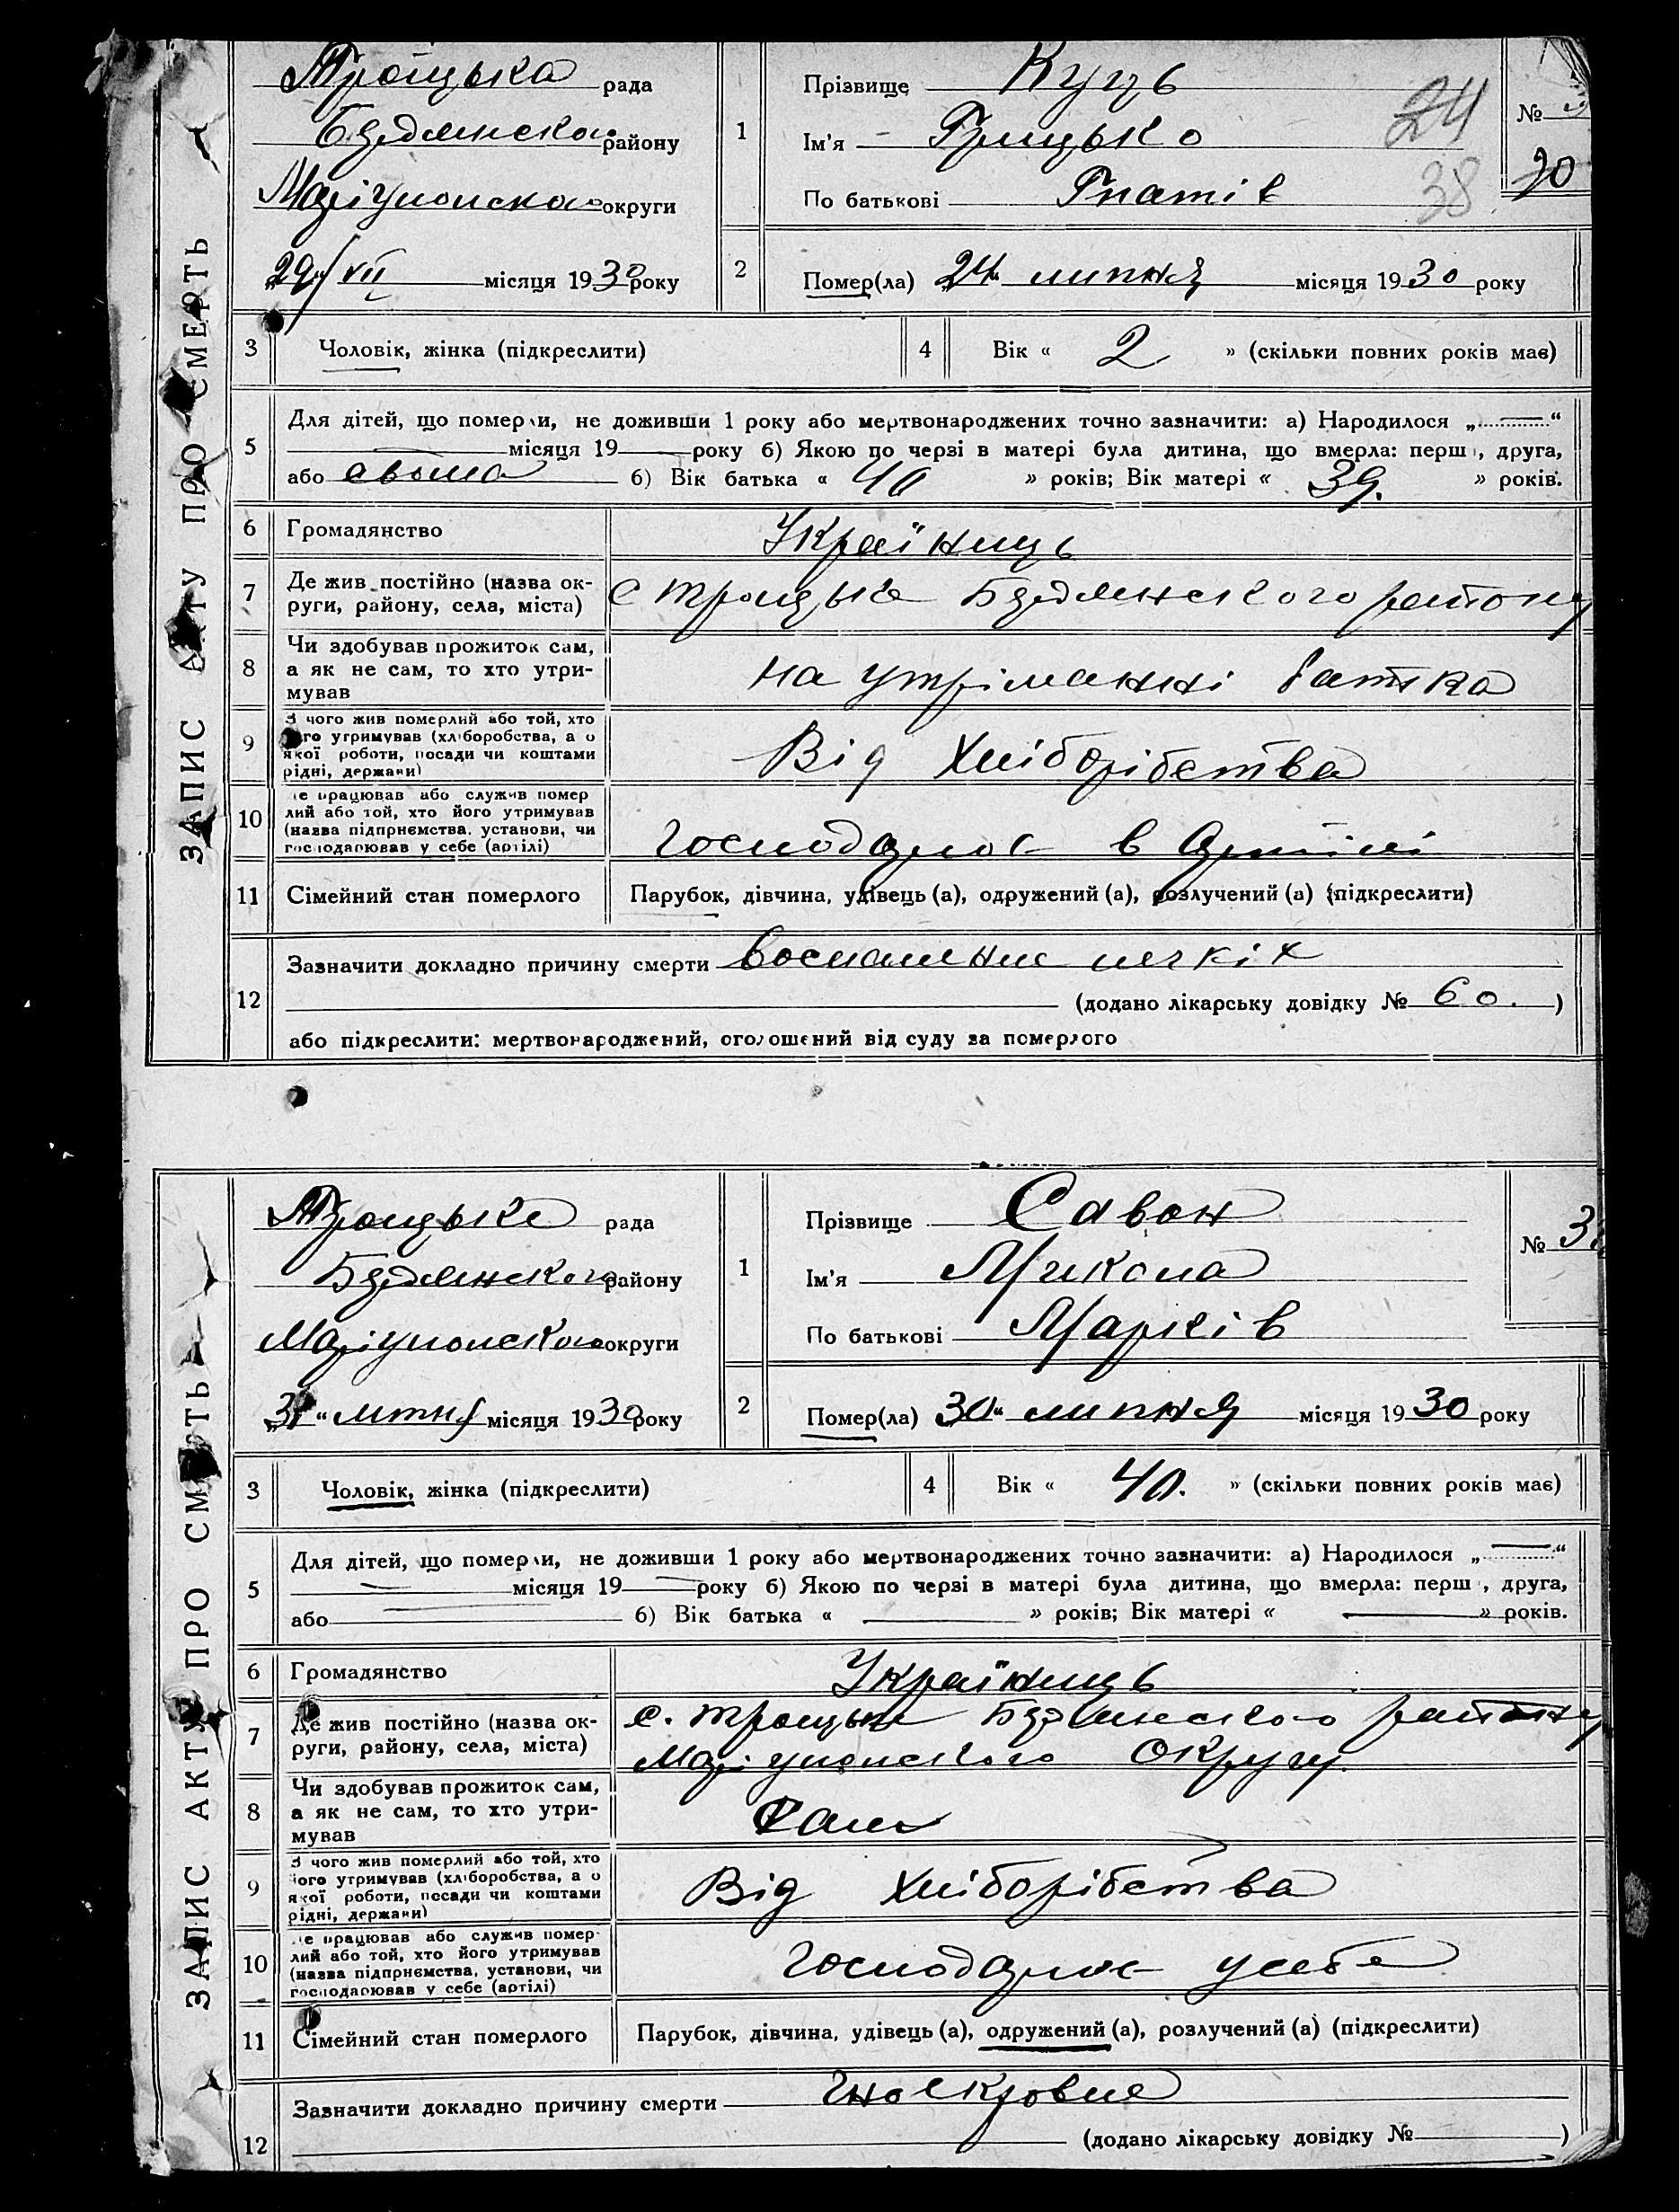 ЗАПИС АКТУ ПРО СМЕРТЬ
Троїцька рада
Бердянского району
Маріупольского округи
„29“/VII місяця 1930 року
1
Прізвище Куць
Ім'я Грицько
По батькові Гнатів
24
38
№
30
2
Помер(ла) „24“ липня місяця 1930 року
3 Чоловік, жінка (підкреслити)
4 Вік « 2 » (скільки повних років має)
5 Для дітей, що померли, не доживши 1 року або мертвонароджених точно зазначити: а) Народилося „ — “
місяця 19 — року б) Якою по черзі в матері була дитина, що вмерла: перша, друга,
або сьома б) Вік батька « 40 » років; Вік матері « 39. » років.
6 Громадянство Українець
7 Де жив постійно (назва ок-
руги, району, села, міста) с Троицьке Бердянского района
8 Чи здобував прожиток сам,
а як не сам, то хто утри-
мував на утріманні батька
9 З чого жив померлий або той, хто
його утримував (хліборобства, а о
якої роботи, посади чи коштами
рідні, держави) Від Хліборібства
10 Де працював або служив помер
лий або той, хто його утримував
(назва підприємства, установи, чи
господарював у себе (артілі) Господарює в Артілі
11 Сімейний стан померлого Парубок, дівчина, удівець (а), одружений (а), розлучений (а) (підкреслити)
12 Зазначити докладно причину смерти воспаление легкіх
(додано лікарську довідку № 60. )
або підкреслити: мертвонароджений, оголошений від суду за померлого
ЗАПИС АКТУ ПРО СМЕРТЬ
Троицьке рада
Бердянского району
Маріупольского округи
„31“ липня місяця 1930 року
1
Прізвище Савон
Ім'я Микола
По батькові Марків
№ 3
2
Помер(ла) „30“ липня місяця 1930 року
3 Чоловік, жінка (підкреслити)
4 Вік « 40. » (скільки повних років має)
5 Для дітей, що померли, не доживши 1 року або мертвонароджених точно зазначити: а) Народилося „ — “
— місяця 19 — року б) Якою по черзі в матері була дитина, що вмерла: перша, друга,
або — б) Вік батька « — » років; Вік матері « — » років.
6 Громадянство Українець
7 Де жив постійно (назва ок-
руги, району, села, міста) с. Троицьке Бердянского района
Маріупольского Округу.
8 Чи здобував прожиток сам,
а як не сам, то хто утри-
мував Сам
9 З чого жив померлий або той, хто
його утримував (хліборобства, а о
якої роботи, посади чи коштами
рідні, держави) Від Хліборібства
10 Де працював або служив помер-
лий або той, хто його утримував
(назва підприємства, установи, чи
господарював у себе (артілі) Господарює усебе
11 Сімейний стан померлого Парубок, дівчина, удівець (а), одружений (а), розлучений (а) (підкреслити)
12 Зазначити докладно причину смерти Гноекровие
(додано лікарську довідку № )